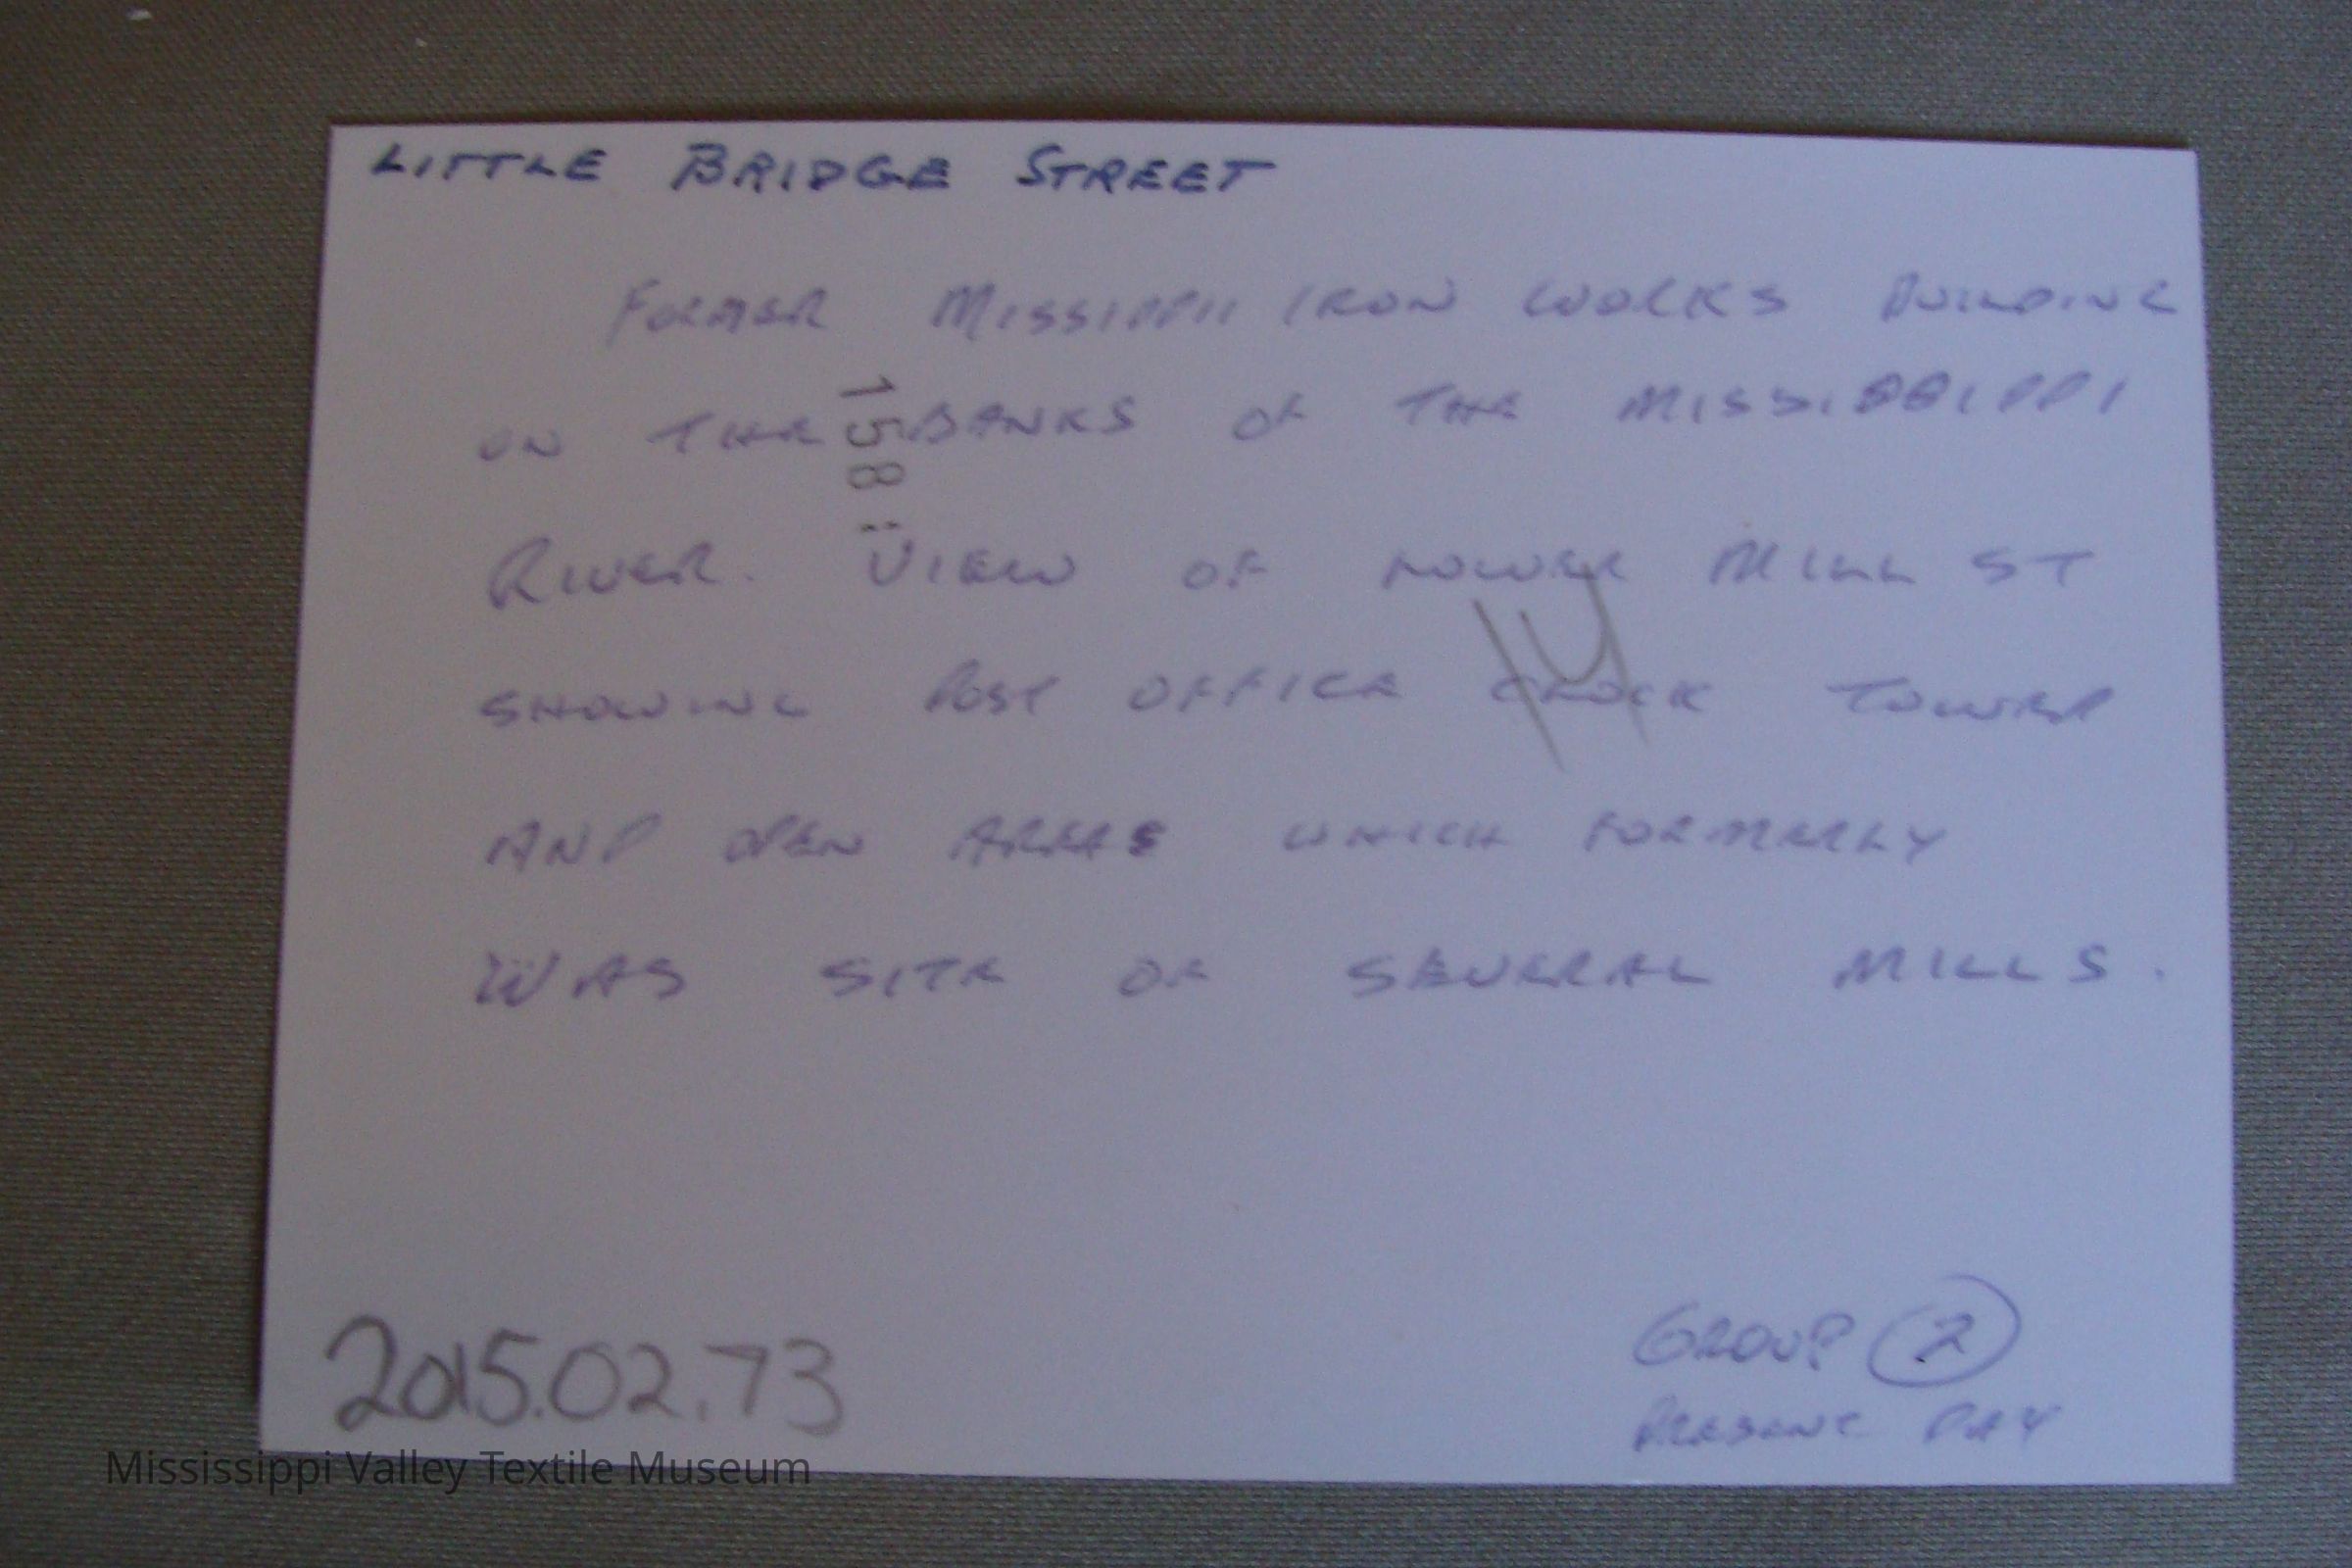 LITTLE BRIDGE STREET
FORMER MISSISSIPPII IRON WORKS BUILDING
ON THE BANKS OF THE MISSISSIPPI
158
RIVER. VIEW OF LOWER MILL ST
SHOWING POST OFFICE CLOCK TOWER
AND OPEN AREAS WHICH FORMERLY
WAS SITE OF SEVERAL MILLS.
GROUP 2
PRESENT DAY
2015.02.73
Mississippi Valley Textile Museum